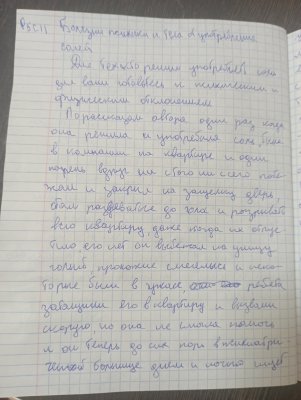 Болезни психики и тела от употребление
солей
Для тех кто решил употребить
для вами обоеих психическими и
физическим отклонениям
По рассказам автора один раз когда
она решила и употребила соль, была
в компании на квартире и один
парень вдруг ни с того ни с сего побе
жал и закрыл на защелку дверь,
стал раздеваться до гола и
всю квартиру, даже когда их отпус
тило его нет он выбежал на улицу
голый прохожие смеялись и неко
торые были в ужасе ребята
затащили его в квартиру и вызвали
скорую, но она не смогла помочь
и он теперь до сих пор в психиатри
ческой больнице днем и ночью